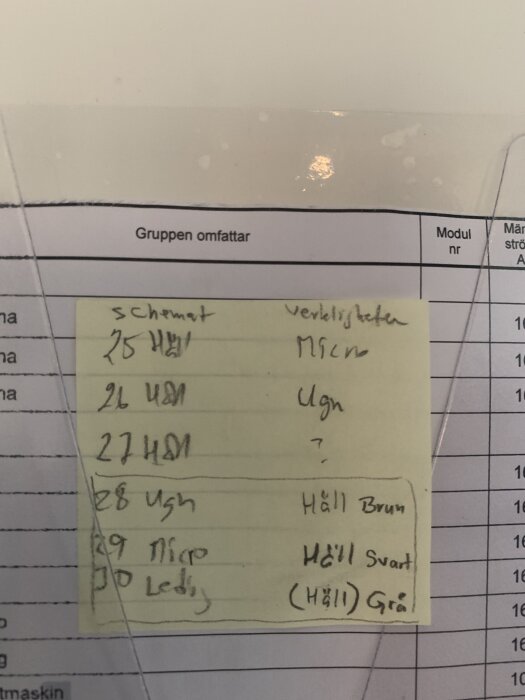 Gruppen omfattar
Modul
nr
Mär
strö
A
na
na
na
schemat verkligheten
25 Häll Micro
26 Häll Ugn
27 Häll ?
28 Ugn Häll Brun
29 Micro Häll Svart
30 Ledig (Häll) Grå
16
16
16
16
16
16
16
16
16
10
g
tmaskin